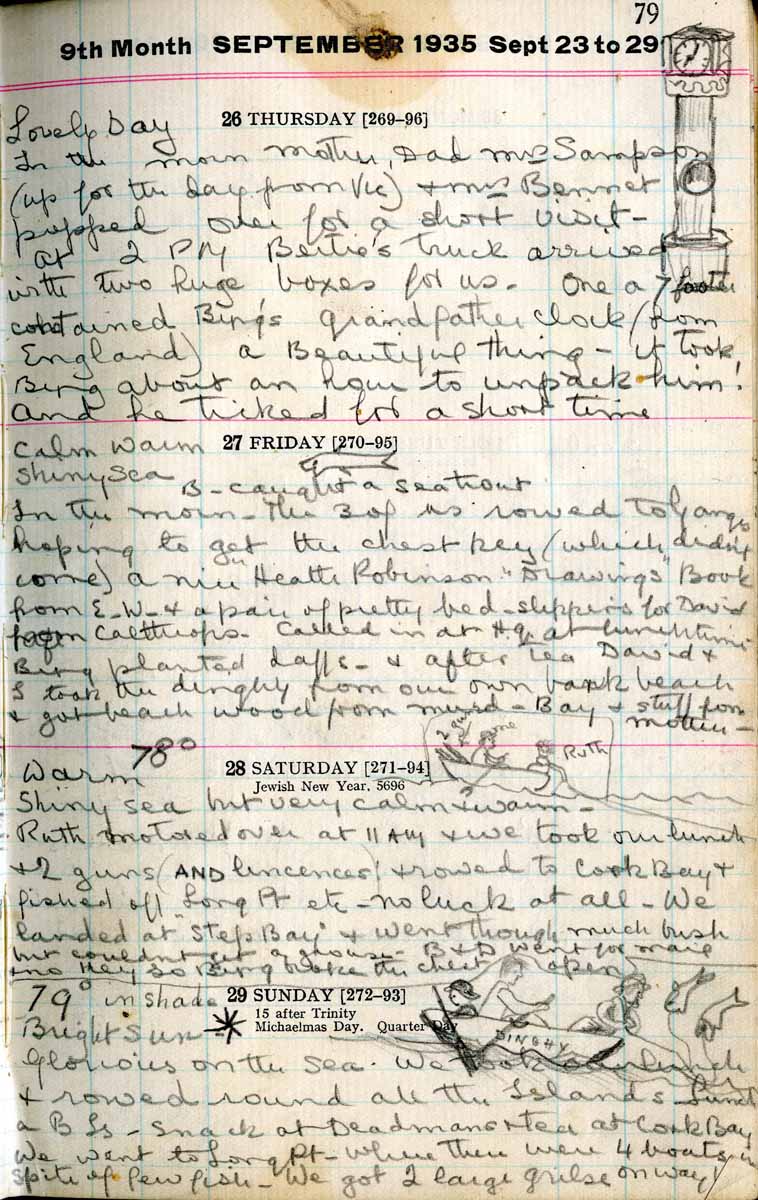 79
9th Month SEPTEMBER 1935 Sept 23 to 29
26 THURSDAY [269–96]
Lovely Day
In the morn mother, Dad Mrs Sampson
(up for the day from Vic) & Mrs Bennet
popped over for a short visit -
at 2 PM Bertie's truck arrived
with two huge boxes for us. One a 7 footer
contained Bing's grandfather clock (from
England) a Beautiful thing - it took
Bing about an hour to unpack him!
and he ticked for a short time
27 FRIDAY [270–95]
Calm Warm
Shiny sea
B - caught a seatrout
In the morn - the 3 of us rowed to Gange
hoping to get the chest key (which didn't
come) a nice "Heath Robinson "Drawings" Book
from E - W - & a pair of pretty bed-slippers for David
from Calthrops. Called in at Hq. at lunchtime
Bing planted daffs - & after tea David &
I took the dinghy from our own back beach
& got beach wood from - Bay & stuff from
mother -
2 guns
Gene
Ruth
28 SATURDAY [271–94]
Jewish New Year, 5696
Warm 78°
Shiny sea but very calm & warm -
Ruth motored over at 11 AM & we took our lunch
& 2 guns (AND lincences) & rowed to Cook Bay &
fished off "Long Pt etc - no luck at all - We
landed at "Steps Bay" & went though much bush
but couldnt get a grouse - B & D went for mail
& no key so Bing broke the chest open
29 SUNDAY [272–93]
15 after Trinity
Michaelmas Day. Quarter Day
79° in shade
Bright Sun
DINGHY
Glorious on the sea. We took our lunch
& rowed round all the Islands Lunch
a B Is - snack at Deadmans & tea at Cook Bay
We went to Long Pt - where there were 4 boats in
spite of few fish - We got 2 large grilse on way!